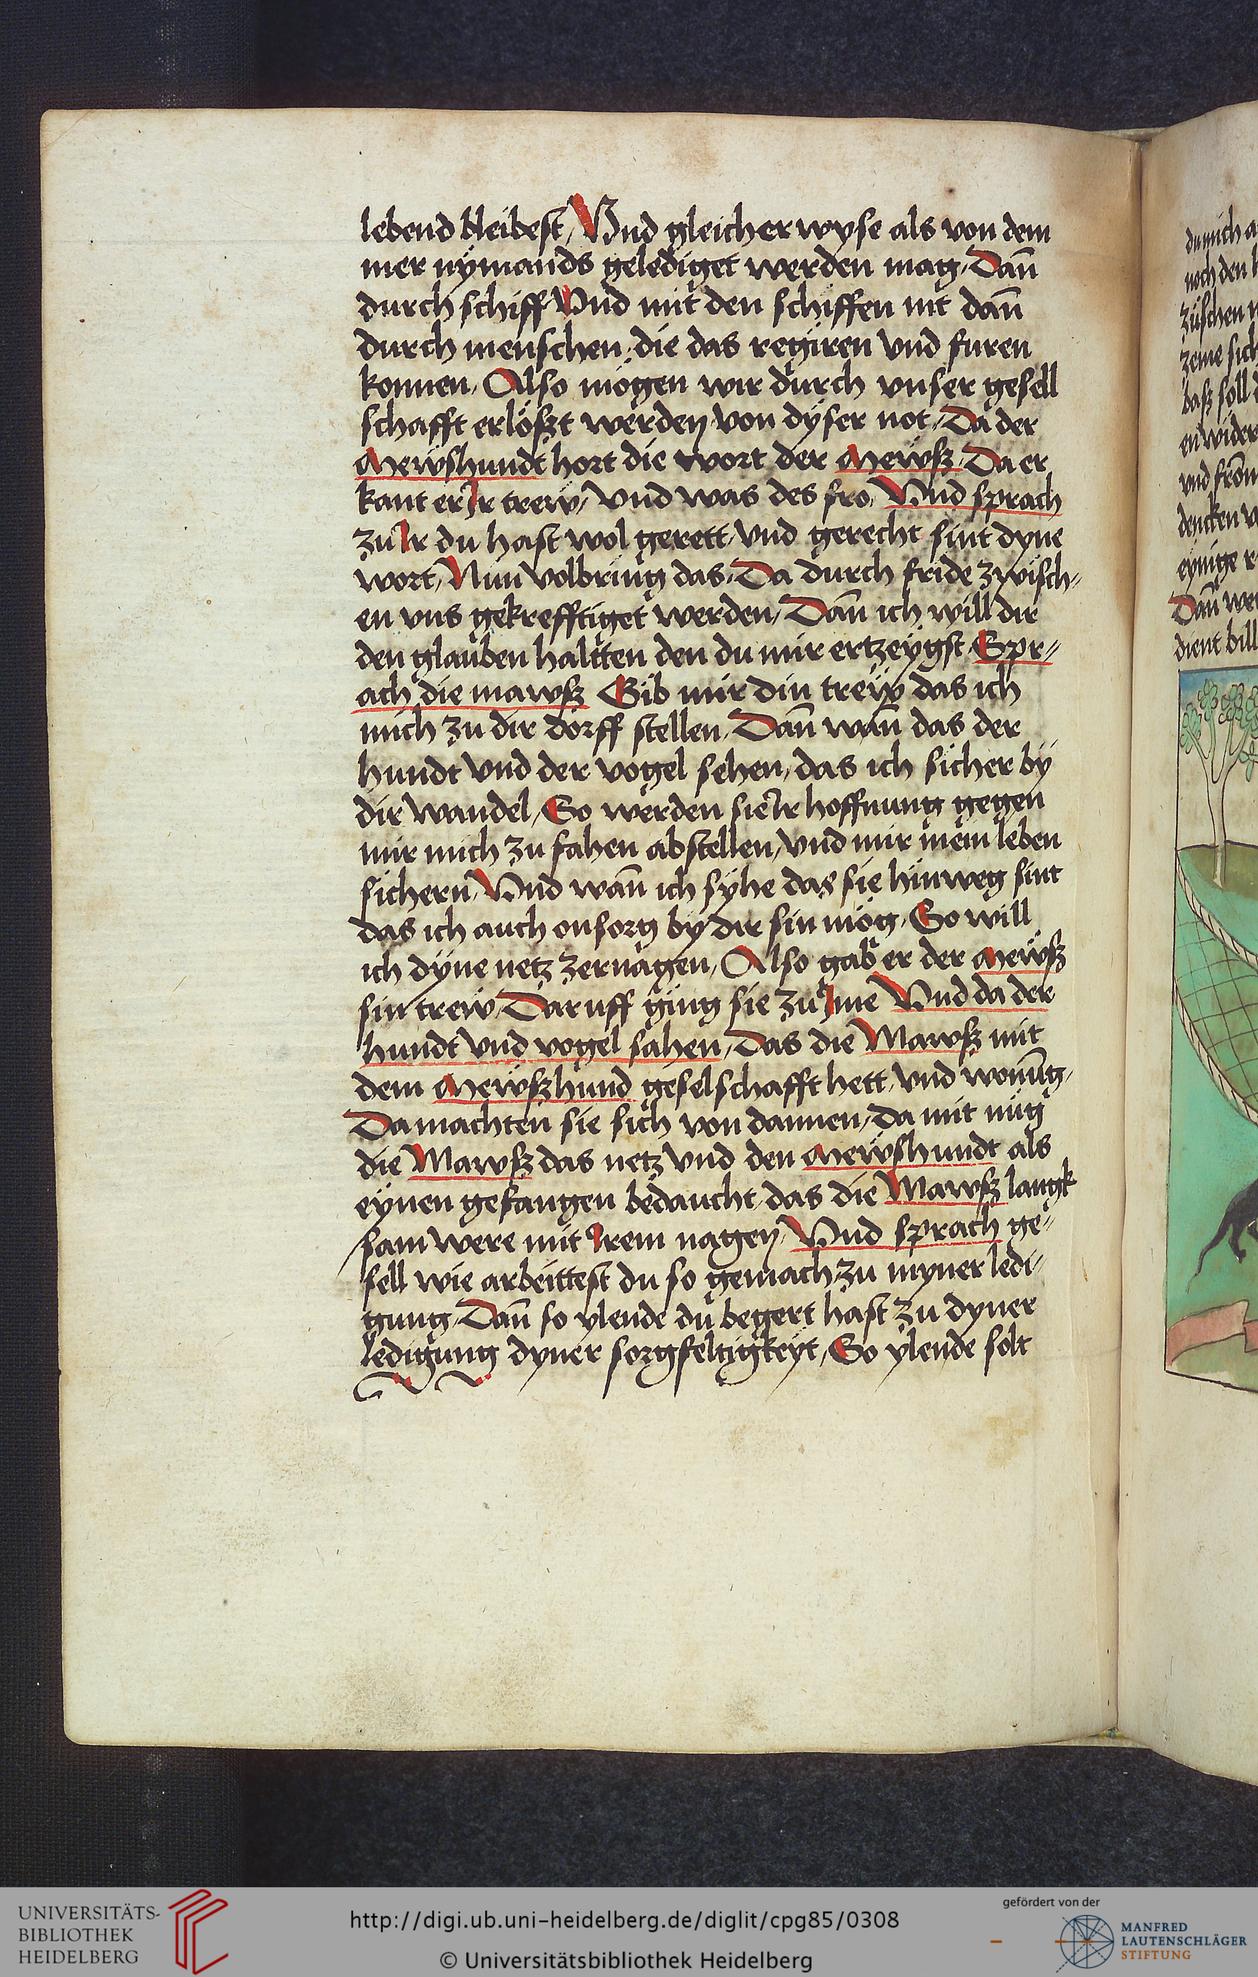 lebend bleibest / Vnd gleicher wyse als von dem
mer nÿmands gelediget werden mag / Dañ
durch schiff Vnd mit den schiffen nit dañ
durch menschen / die das regiren vnd furen
konnen / Also mögen wir durch vnser gesell
schafft erlößt werden von dÿser not / Da der
Mewßhundt hort die wort der Mewß / Da er
kant er Ir trew / vnd was des fro / Vnd sprach
zu Ir du hast wol gerett vnd gerecht sint dyne
wort / Nun volbring das / Da durch fride zwisch=
en vns gekrefftiget werden / Dañ ich will dir
den glauben haltten den du mir ertzeygst Spr=
ach die mawß Gib mir din trew das ich
mich zu dir dörff stellen / Dañ wañ das der
hundt vnd der vogel sehen / das ich sicher bÿ
dir wandel / So werden sie Ir hoffnung gegen
mir mich zu fahen abstellen / vnd mir mein leben
sichern / Vnd wañ ich sÿhe das sie hinweg sint
das ich auch on sorg bÿ dir sin mög / So will
ich dÿne netz zernagen / Also gab er der Mewß
sin trew / Daruff ging sie zu Ime Vnd da der
hundt vnd vogel sahen / Das die Mawß mit
dem Mewßhund geselschafft hett / vnd wonūg /
Da machten sie sich von dannen / Da mit nug
die Mawß das netz vnd den Mewßhundt als
eÿnen gefangen bedaucht das die Mawß langk
sam were mit Irem nagen / Vnd sprach ge=
sell wie arbeittest du so gemach zu myner ledi=
gung / Dañ so ylende du begert hast zu dyner
ledigung dyner sorgfeltigkeyt / So ylende solt
du mich
noch den
zeme sich
baß soll
vnd
dencken
eynige
Dañ
dient bill
UNIVERSITÄTS-
BIBLIOTHEK
HEIDELBERG
http://digi.ub.uni-heidelberg.de/diglit/cpg85/0308
© Universitätsbibliothek Heidelberg
gefördert von der
MANFRED
LAUTENSCHLÄGER
STIFTUNG